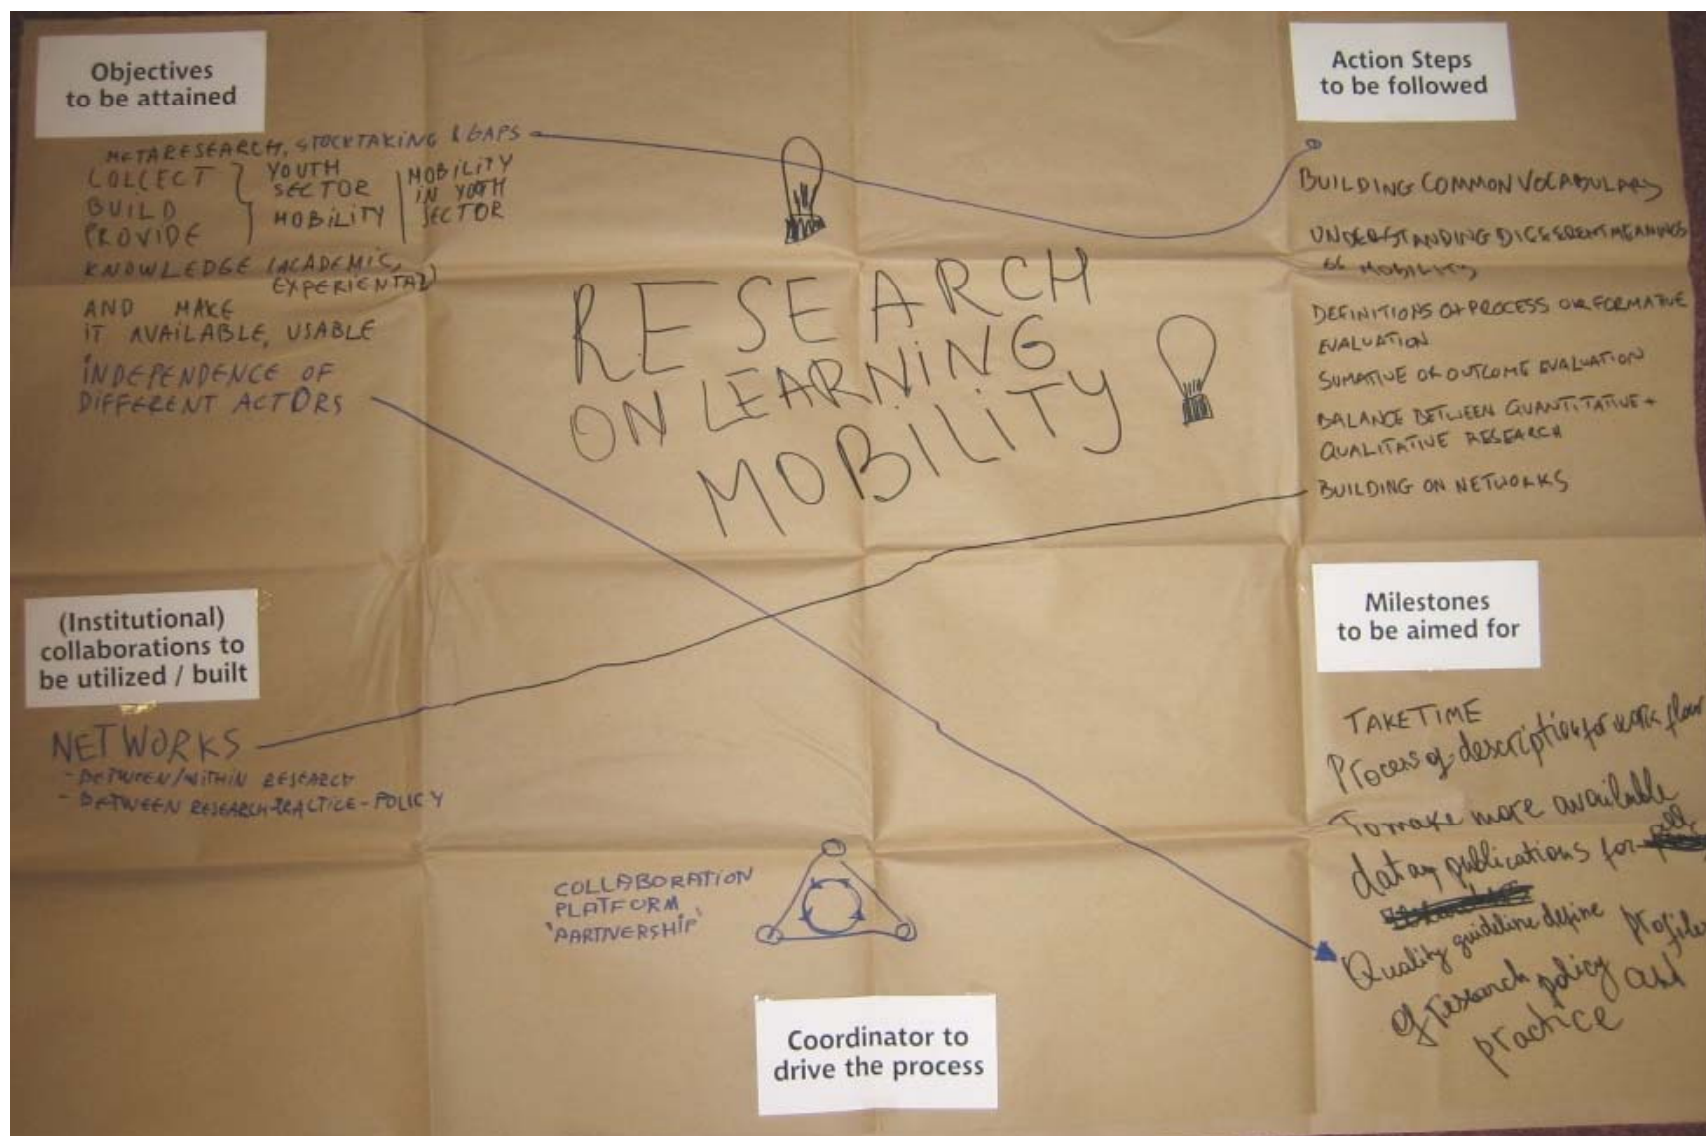 Objectives
to be attained
METARESEARCH, STOCKTAKING & GAPS
COLLECT
BUILD
PROVIDE
YOUTH
SECTOR
MOBILITY
MOBILITY
IN YOUTH
SECTOR
KNOWLEDGE (ACADEMIC,
EXPERIENTAL)
AND MAKE
IT AVAILABLE, USABLE
INDEPENDENCE OF
DIFFERENT ACTORS
RESEARCH
ON LEARNING
MOBILITY
Action Steps
to be followed
BUILDING COMMON VOCABULARY
UNDERSTANDING DIFFERENT MEANINGS
OF MOBILITY
DEFINITIONS OF PROCESS OR FORMATIVE
EVALUATION
SUMATIVE OR OUTCOME EVALUATION
BALANCE BETWEEN QUANTITATIVE +
QUALITATIVE RESEARCH
BUILDING ON NETWORKS
(Institutional)
collaborations to
be utilized / built
NETWORKS
- BETWEEN/WITHIN RESEARCH
- BETWEEN RESEARCH-PRACTICE-POLICY
COLLABORATION
PLATFORM
'PARTNERSHIP'
Coordinator to
drive the process
Milestones
to be aimed for
TAKE TIME
Process of description for work flow
To make more available
data publications for all
Quality guideline define profiles
of research policy and
practice